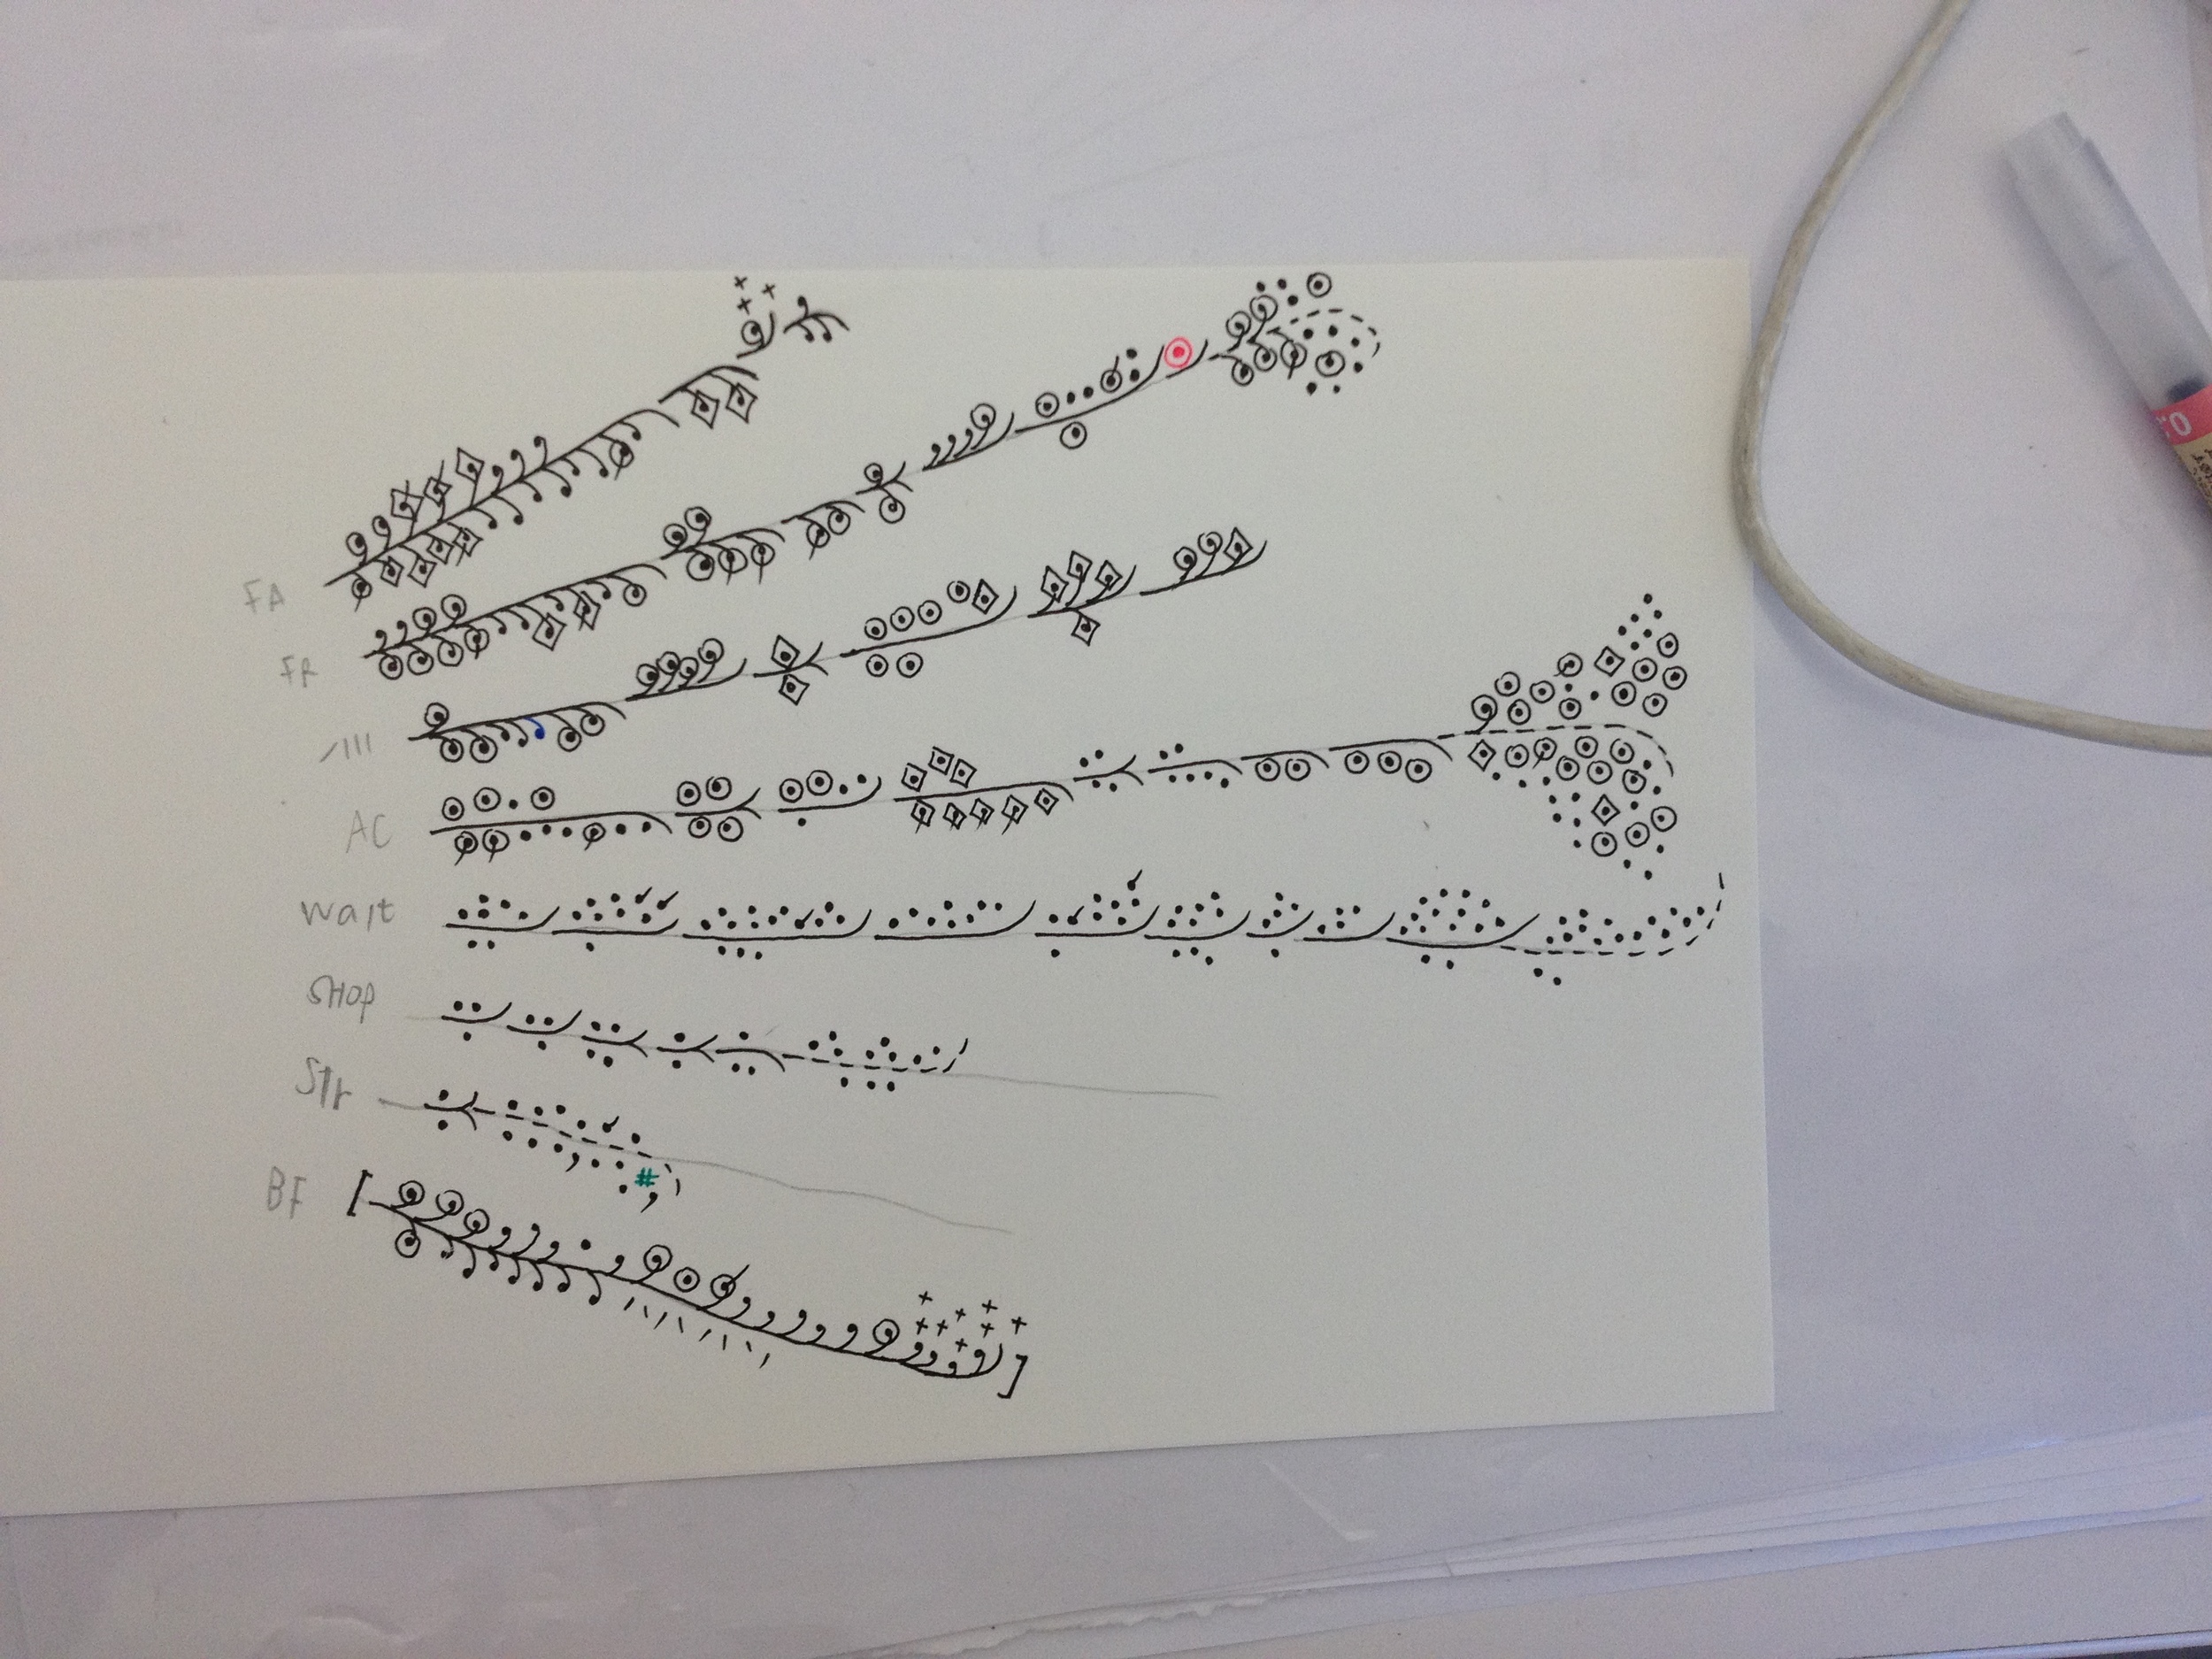 FA
FR
AC
Wait
SHop
Str
BF
#